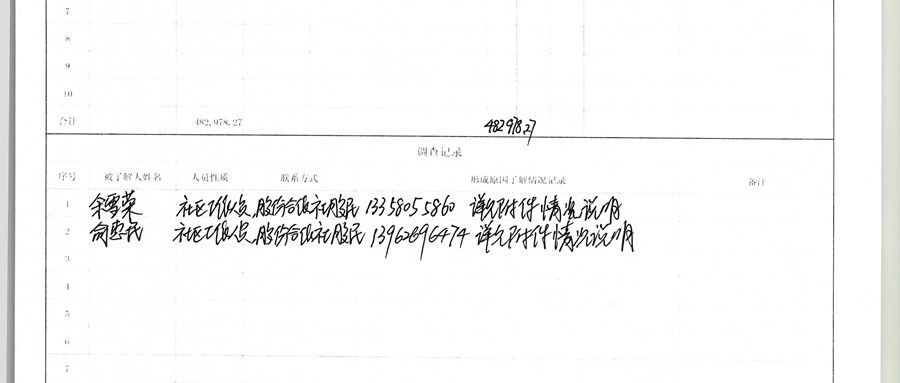 7
8
9
10
合计 482,978.27 482978.27
调查记录
序号 被了解人姓名 人员性质 联系方式 形成原因了解情况记录 备注
1 余雪荣 社区工作人员,股份合作社股民 13358055860 详见附件情况说明
2 惠民 社区工作人员,股份合作社股民 13962696474 详见附件情况说明
3
4
5
6
7